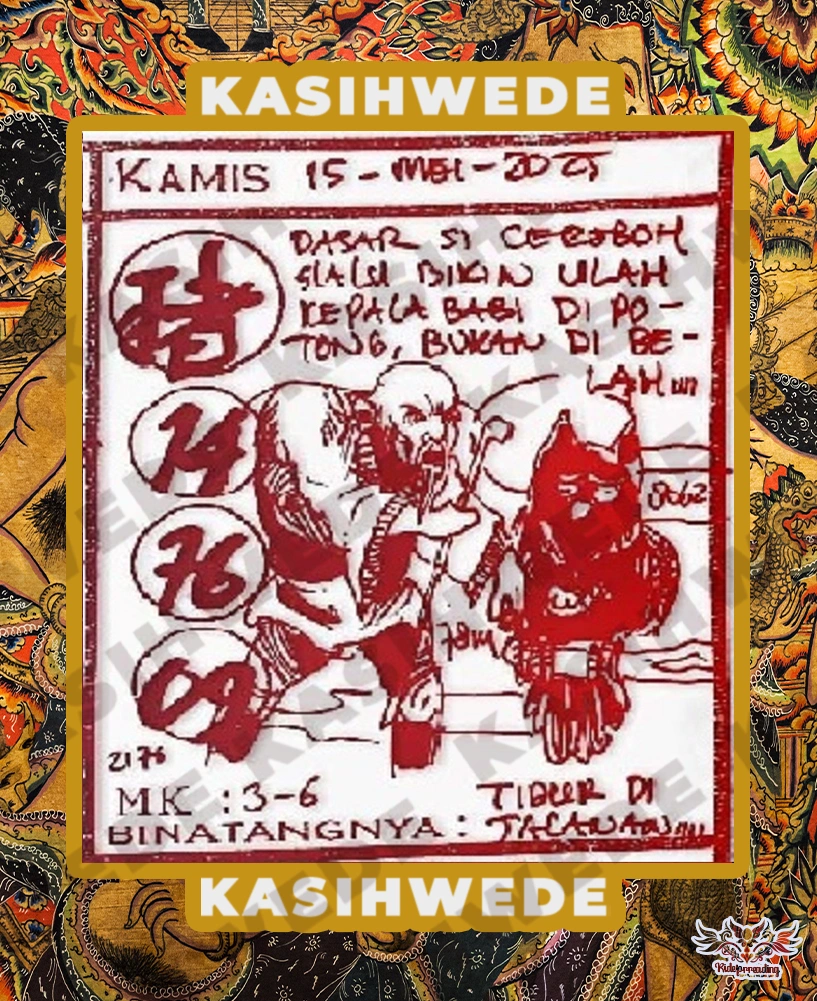 KASIHWEDE
KAMIS 15 - MEI - 2025
DASAR SI CEROBOH
SLALU BIKIN ULAH
KEPALA BABI DI PO-
TONG, BUKAN DI BE-
LAH
14
76
09
8062
2176
MK : 3-6
TIDUR DI
BINATANGNYA : JALANAN
KASIHWEDE